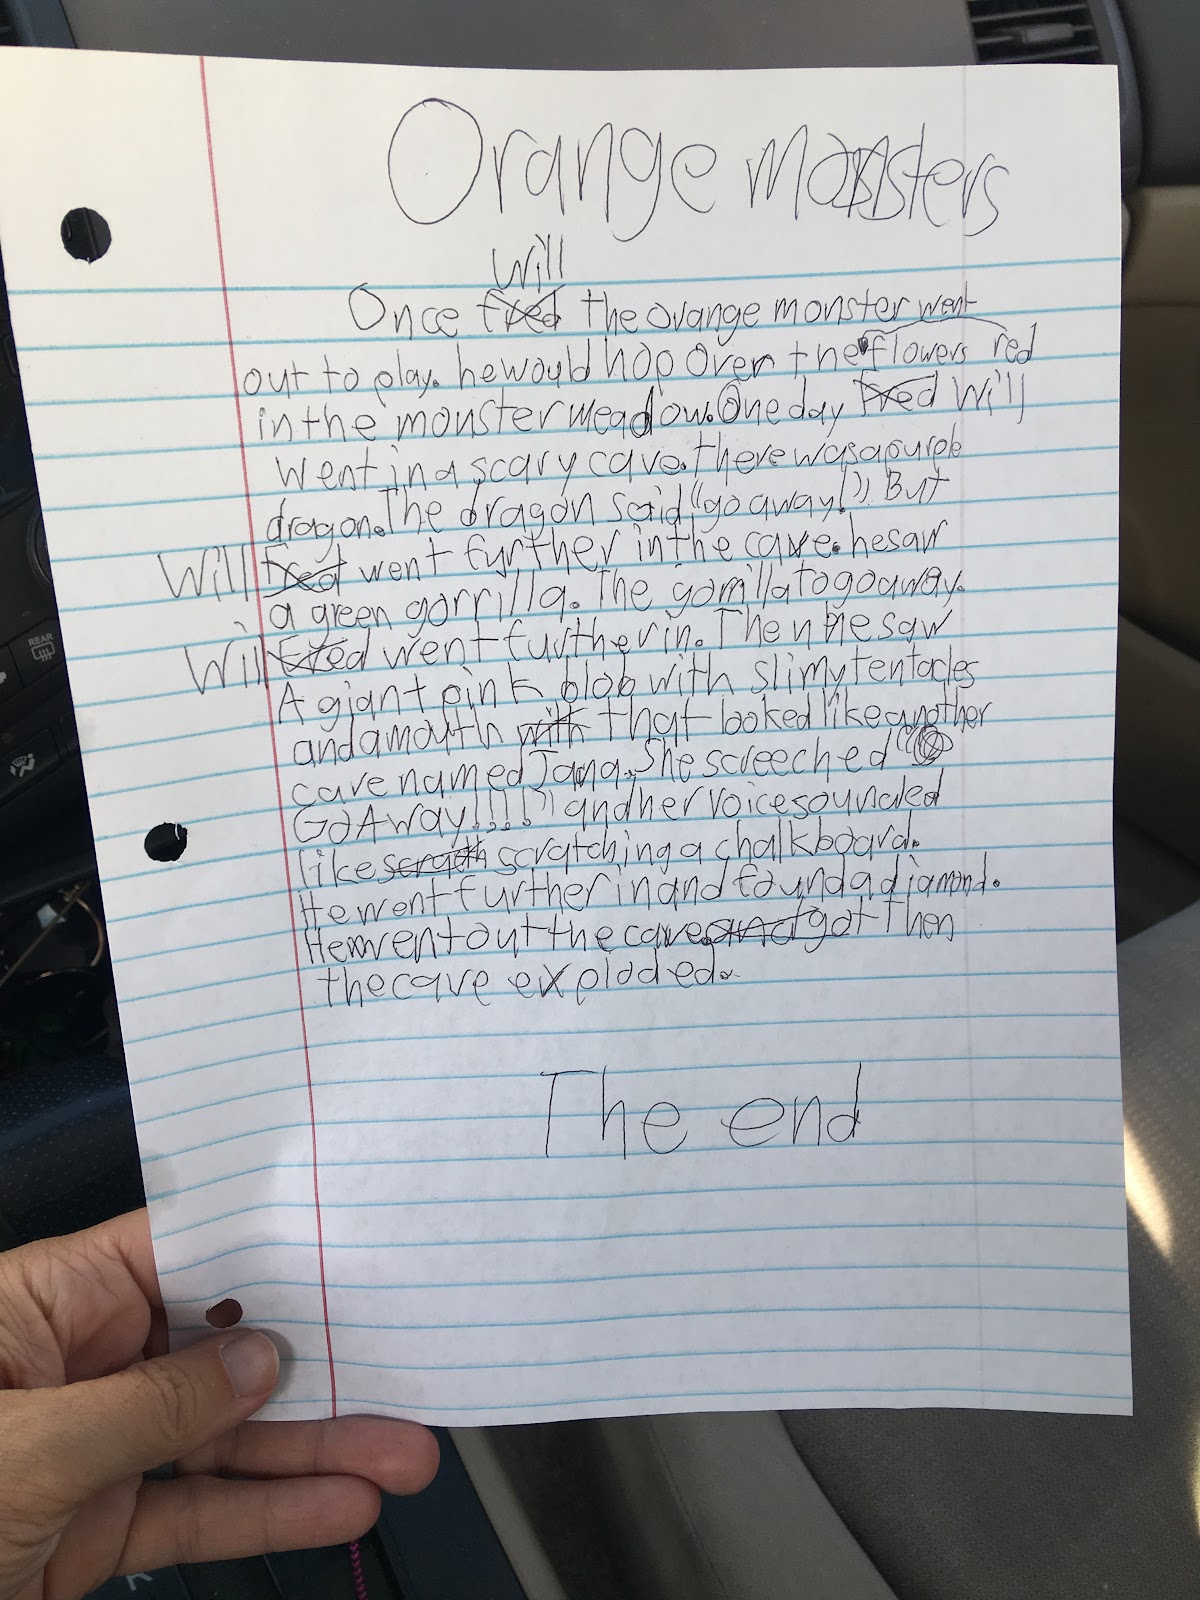 Orange monsters
Will
Once Fred the orange monster went
out to play. he would hop over the flowers red
in the monster meadow. One day Fred Will
went in a scary cave. there was a purple
dragon. The dragon said "go away!" But
Will Fred went further in the cave. he saw
a green gorrilla. The gorrilla to go away.
Will Fred went further in. Then he saw
A giant pink blob with slimy tentacles
and a mouth with that looked like another
cave named Jana. She screeched "
Go Away!!!!" and her voice sounded
like scratch scratching a chalkboard.
He went further in and found a diamond.
He went out the cave and got Then
the cave exploded.
The end
REAR